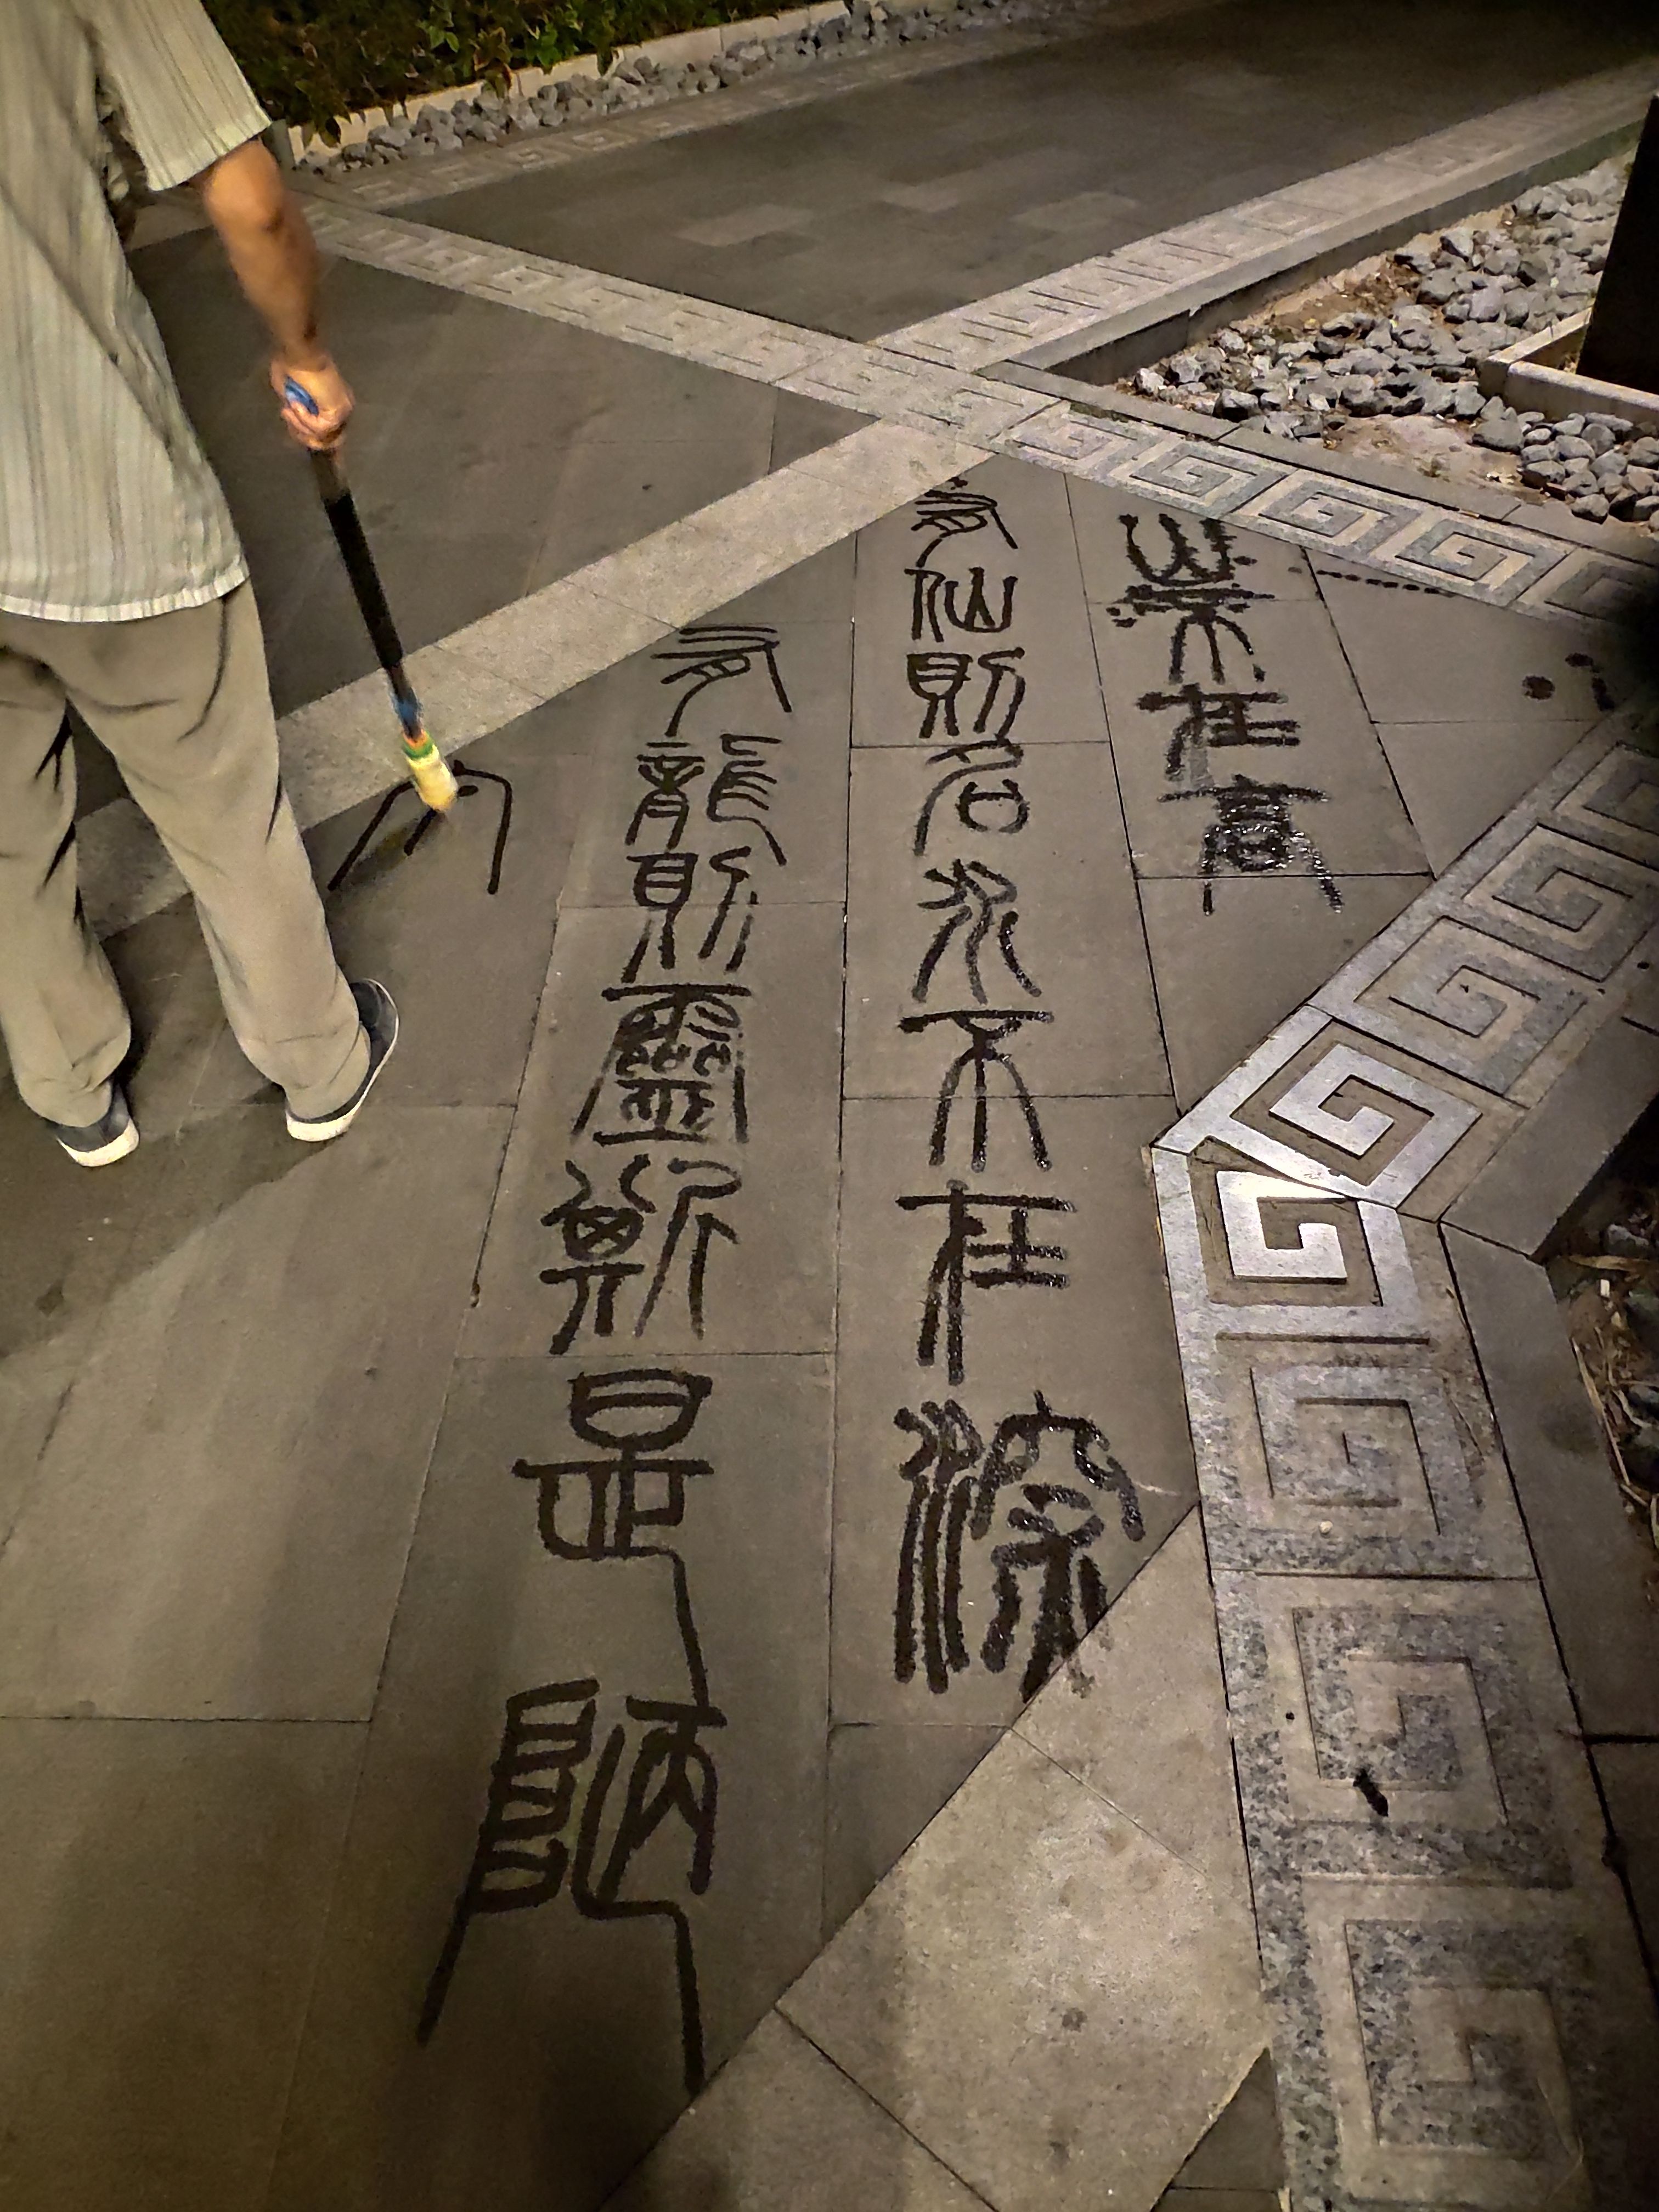 山不在高
有仙則名水不在深
有龍則靈斯是陋